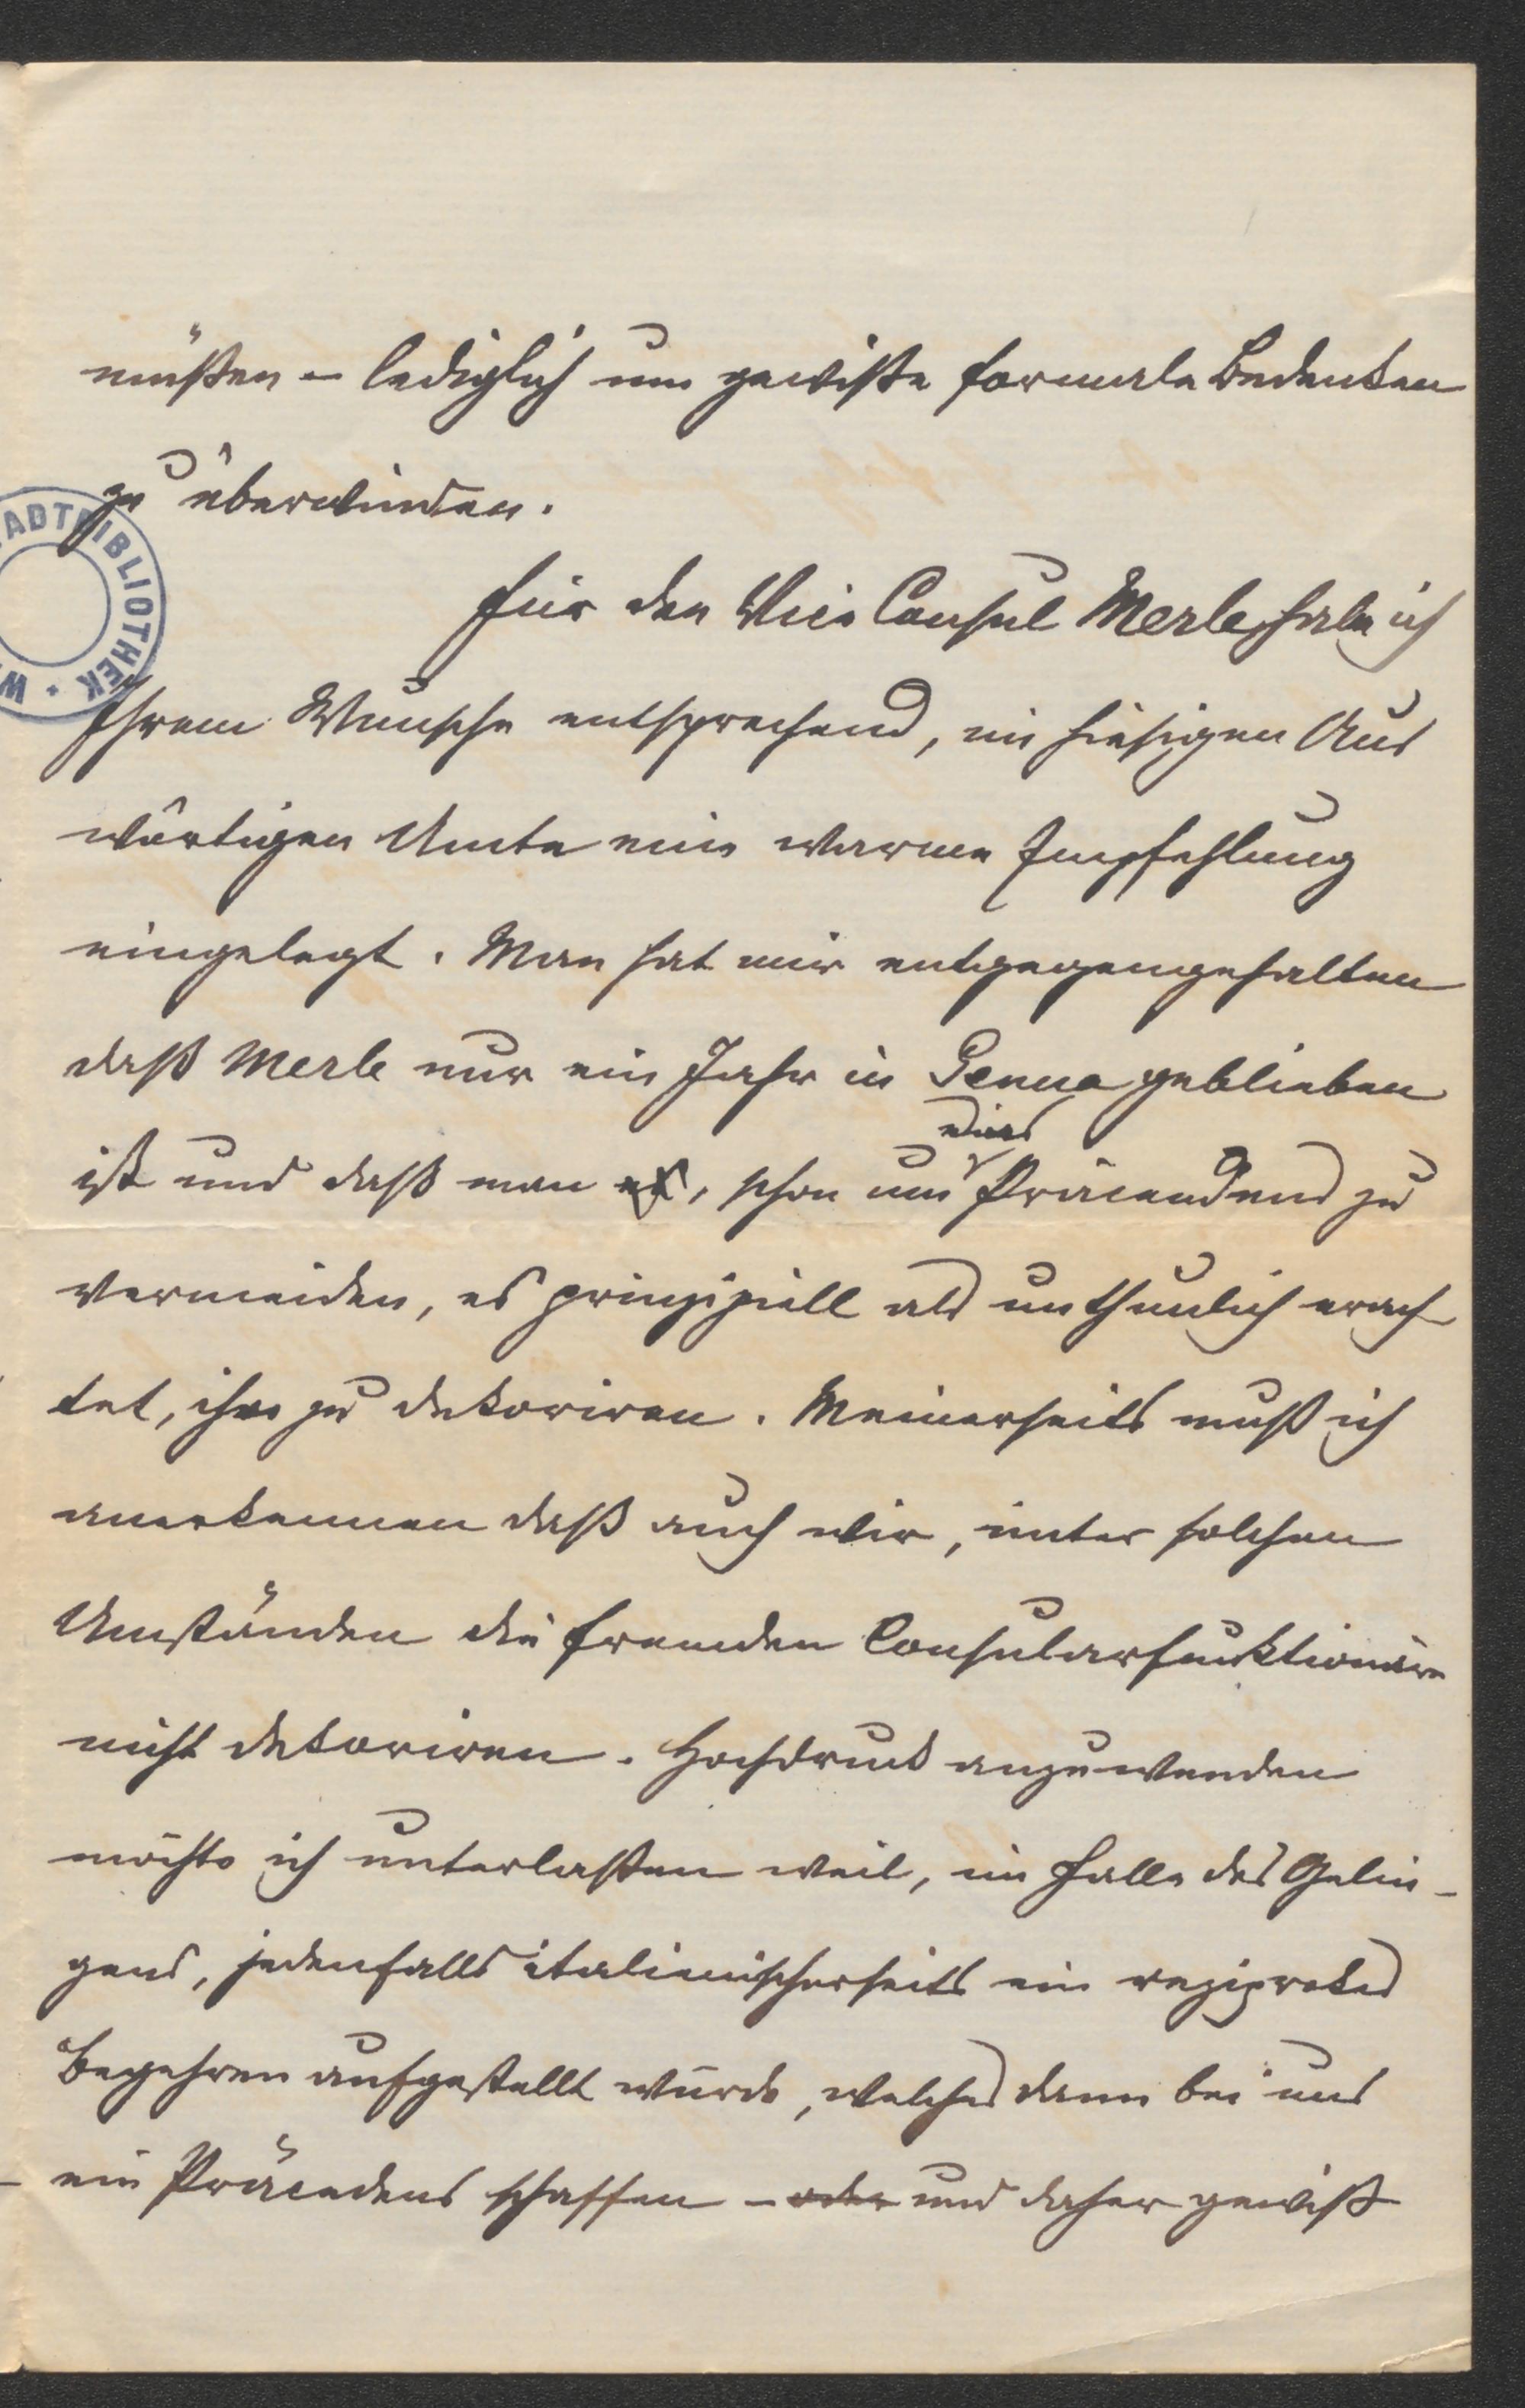 müßen – lediglich um gewiße formale Bedenken
zu überwinden.
Für den Vice Consul Merle, habe ich
Ihrem Wunsche entsprechend, im hiesigen Aus
wärtigen Amte eine warme Empfehlung
eingelegt. Man hat mir entgegengehalten
daß Merle nur ein Jahr in Genua geblieben
ist und daß man es, schon um Präcendens zu
vermeiden, es prinzipiell als unthunlich erach
tet, ihn zu dekoriren. Meinerseits muß ich
anerkennen daß auch wir, unter solchen
Umständen die fremden Consularfunktionäre
nicht dekoriren. Hochdruck anzuwenden
möchte ich unterlaßen weil, im Falle des Gelin-
gens, jedenfalls italienischerseits ein reziprokes
Begehren aufgestellt würde, welches dann bei uns
ein Präcedens schaffen – oder und daher gewiß
ADTBIBLIOTHEK · W